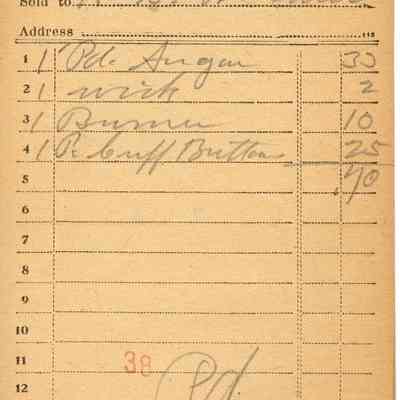 Sold to
Address 115
1 1 Pd. Sugar 33
2 1 wick 2
3 1 Burner 10
4 1 Pr Cuff Buttons 25
5 70
6
7
8
9
10
11 38
12 Pd.